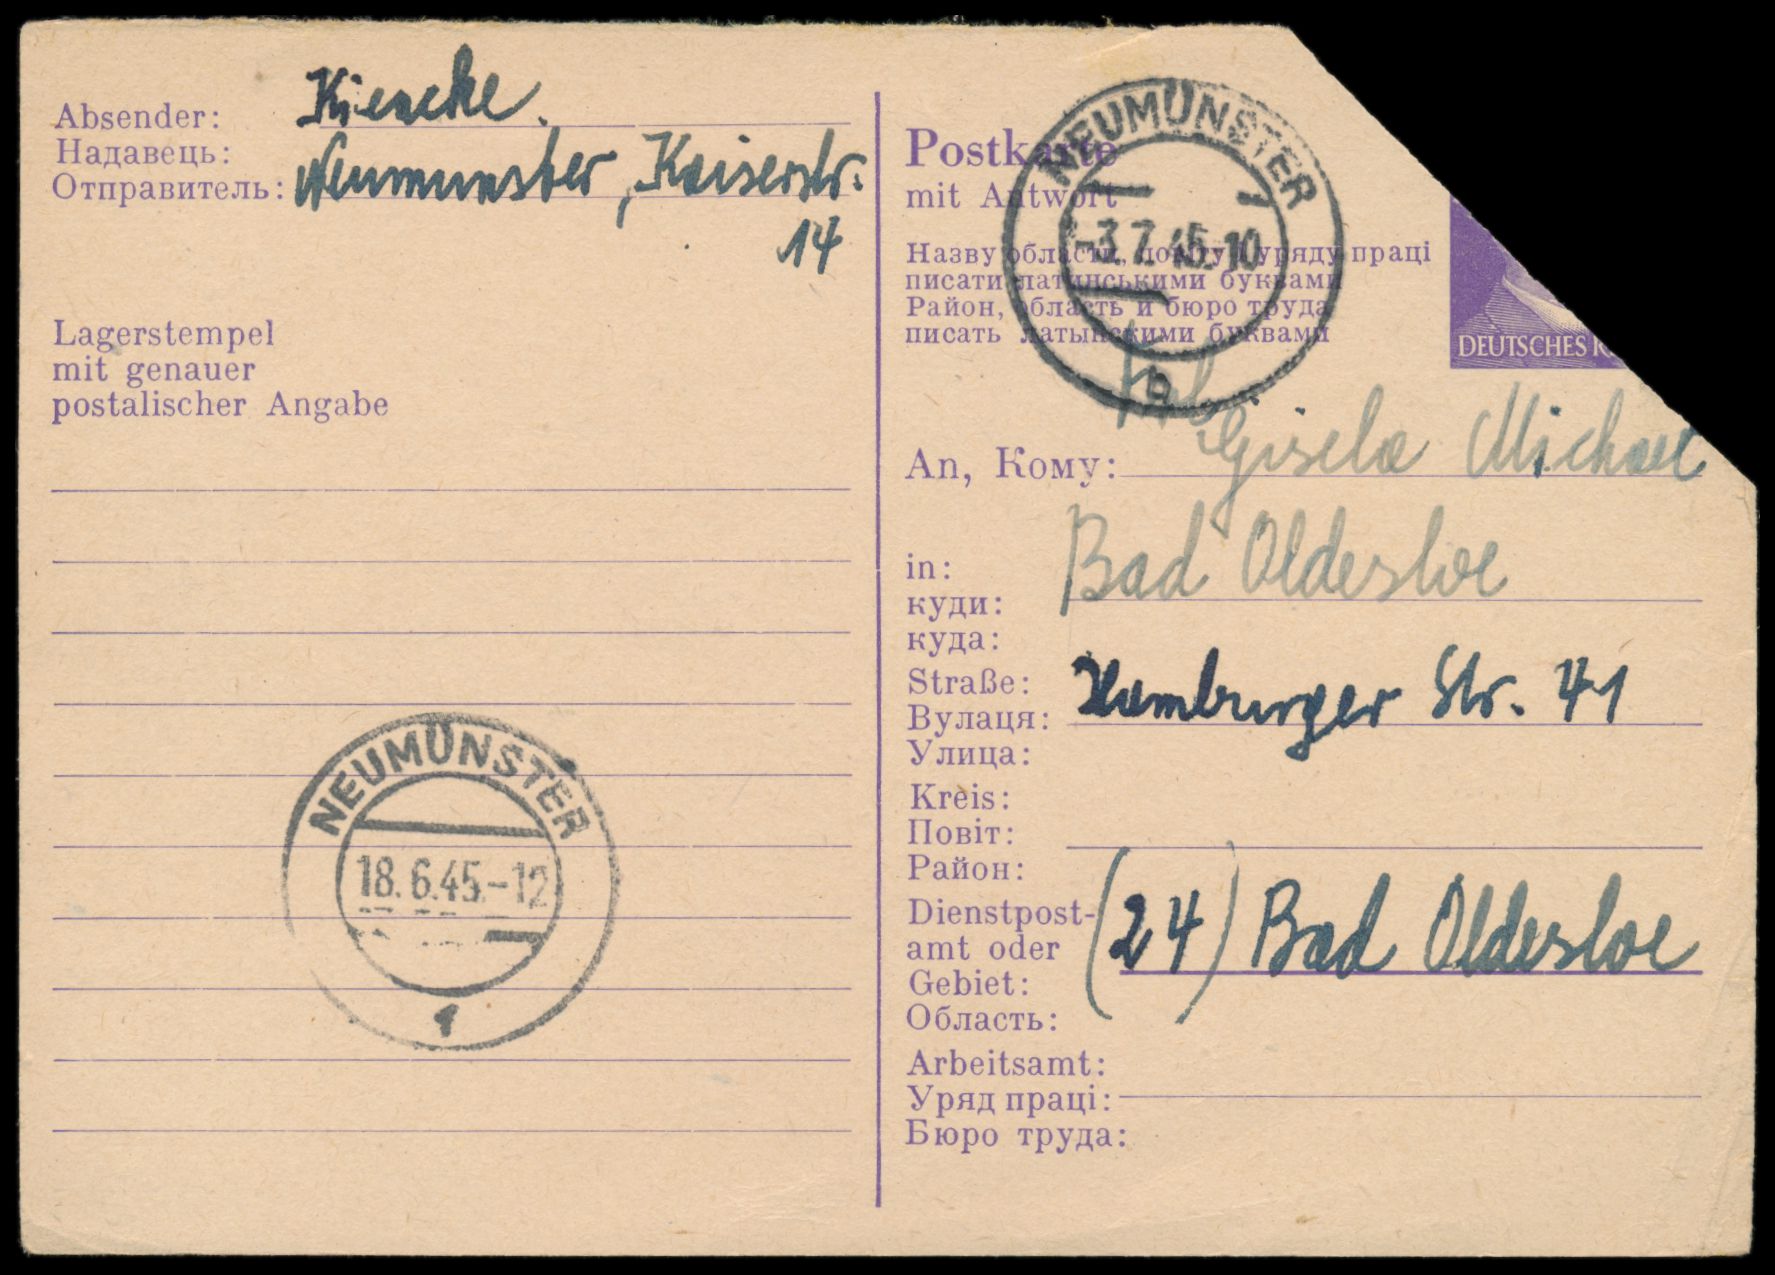 Absender:
Надавець:
Отправитель:
Neumünster, Kaiserstr.
14
Lagerstempel
mit genauer
postalischer Angabe
NEUMÜNSTER
18.6.45.-12
1
Postkarte
mit Antwort
Назву области, повіту і уряду праці
писати латинськими буквами
Район, область и бюро труда
писать латынскими буквами
NEUMÜNSTER
-3.7.45.10
b
DEUTSCHES R
An, Кому: Frl Gisela Michael
in: Bad Oldesloe
куди:
куда:
Straße: Hamburger Str. 41
Вулаця:
Улица:
Kreis:
Повіт:
Район:
Dienstpost-
amt oder (24) Bad Oldesloe
Gebiet:
Область:
Arbeitsamt:
Уряд праці:
Бюро труда: